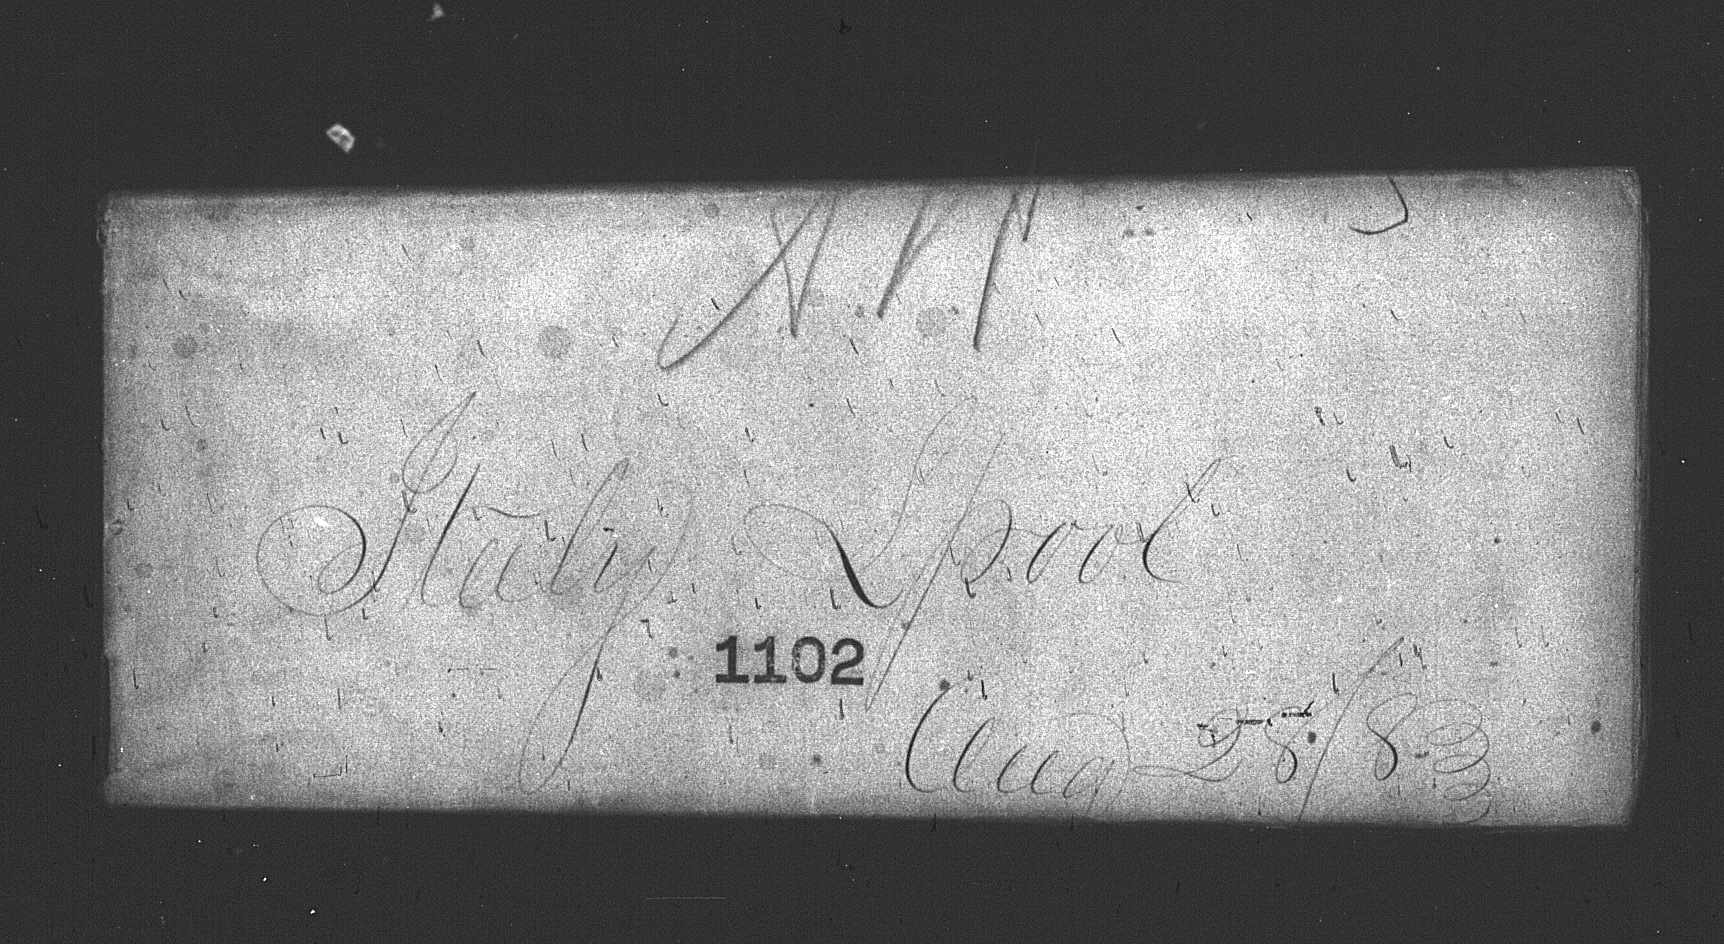 NY
Italy Lpool
1102
Aug 28/83